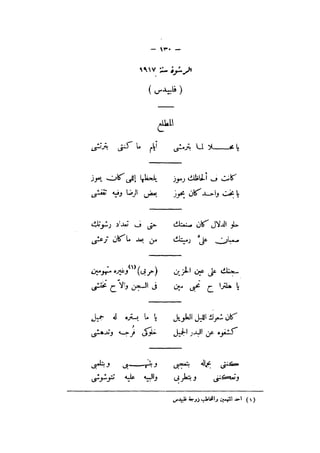 — ١٣٠ —
الرشوة سنة ١٩١٧
( فلبيدس )
المطلع
يا محـــلا لما بترمشى أيام ما كنتى بترتشى
كانت ف ألحاظك رموز يلحظها إللى كان يجوز
يا بخت واحد كان يحوز بعض الرضا وفيه تفتشى
حلو الدلال كان صنعتك حتى ف تعداد رشوتك
صعبان على رميتك من بعد ما كان ترعشى
سجنتك على عين الحزين (حربى)(١) وغيره متهومين
يا هلترا ح نحى مين فى السجن والاّ ح تختشى
كان شعرك الليل الطويل يا ما يستره له جميل
كشفوه عن البدر الجميل خلوكى فرجه وتدهشى
كنتى بحاله بتعجبى وبتلعبى
وتمكنتى وبتطربى والبيه عليه تشوشى
(١) احد المتهمين والمخاطب زوجة فلبيدس